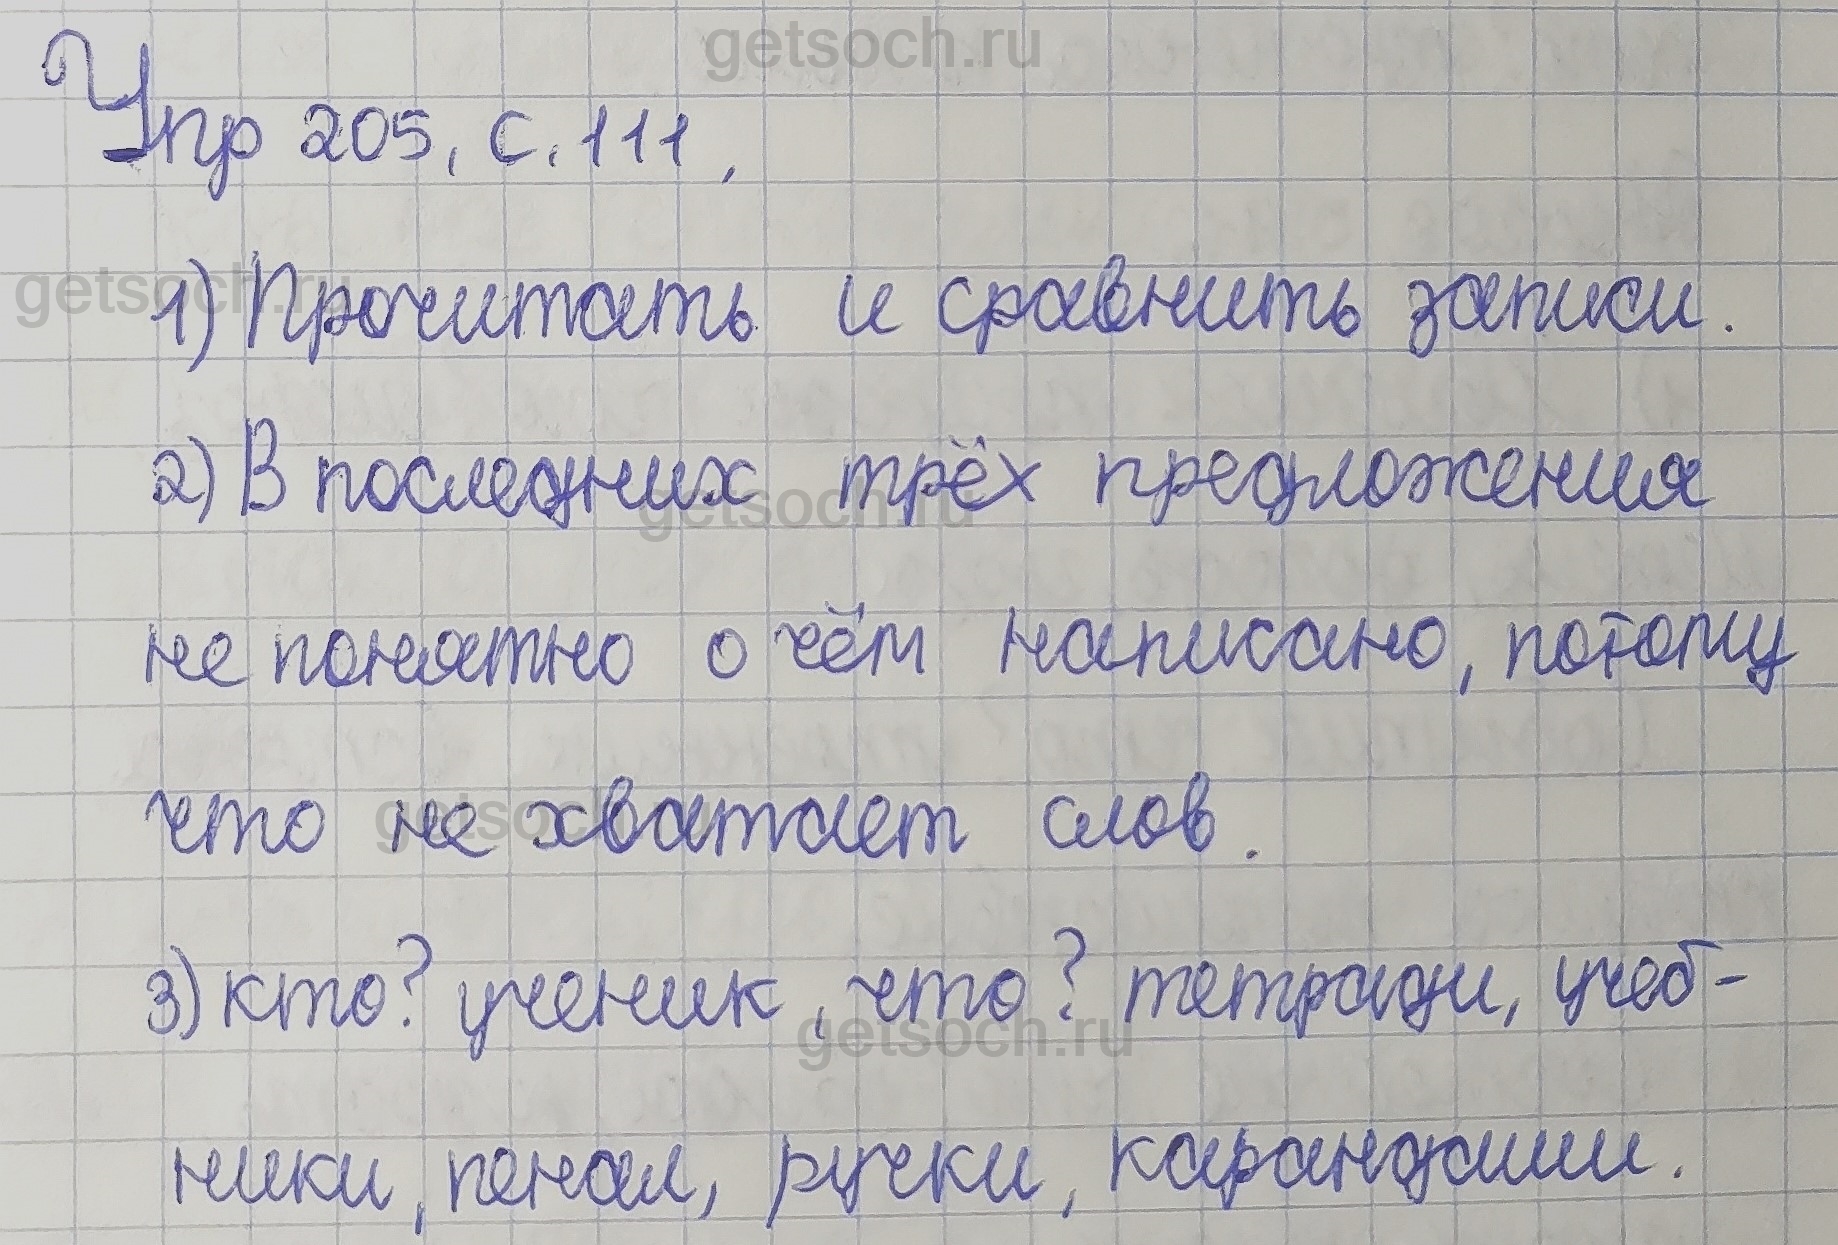 getsoch.ru
Упр 205, с. 111,
getsoch.ru
1) Прочитать и сравнить записи.
2) В последних трёх предложения
getsoch.ru
не понятно о чём написано, потому
что не хватает слов.
getsoch.ru
3) кто? ученик, что? тетради, учеб-
getsoch.ru
ники, пенал, ручки, карандаши.